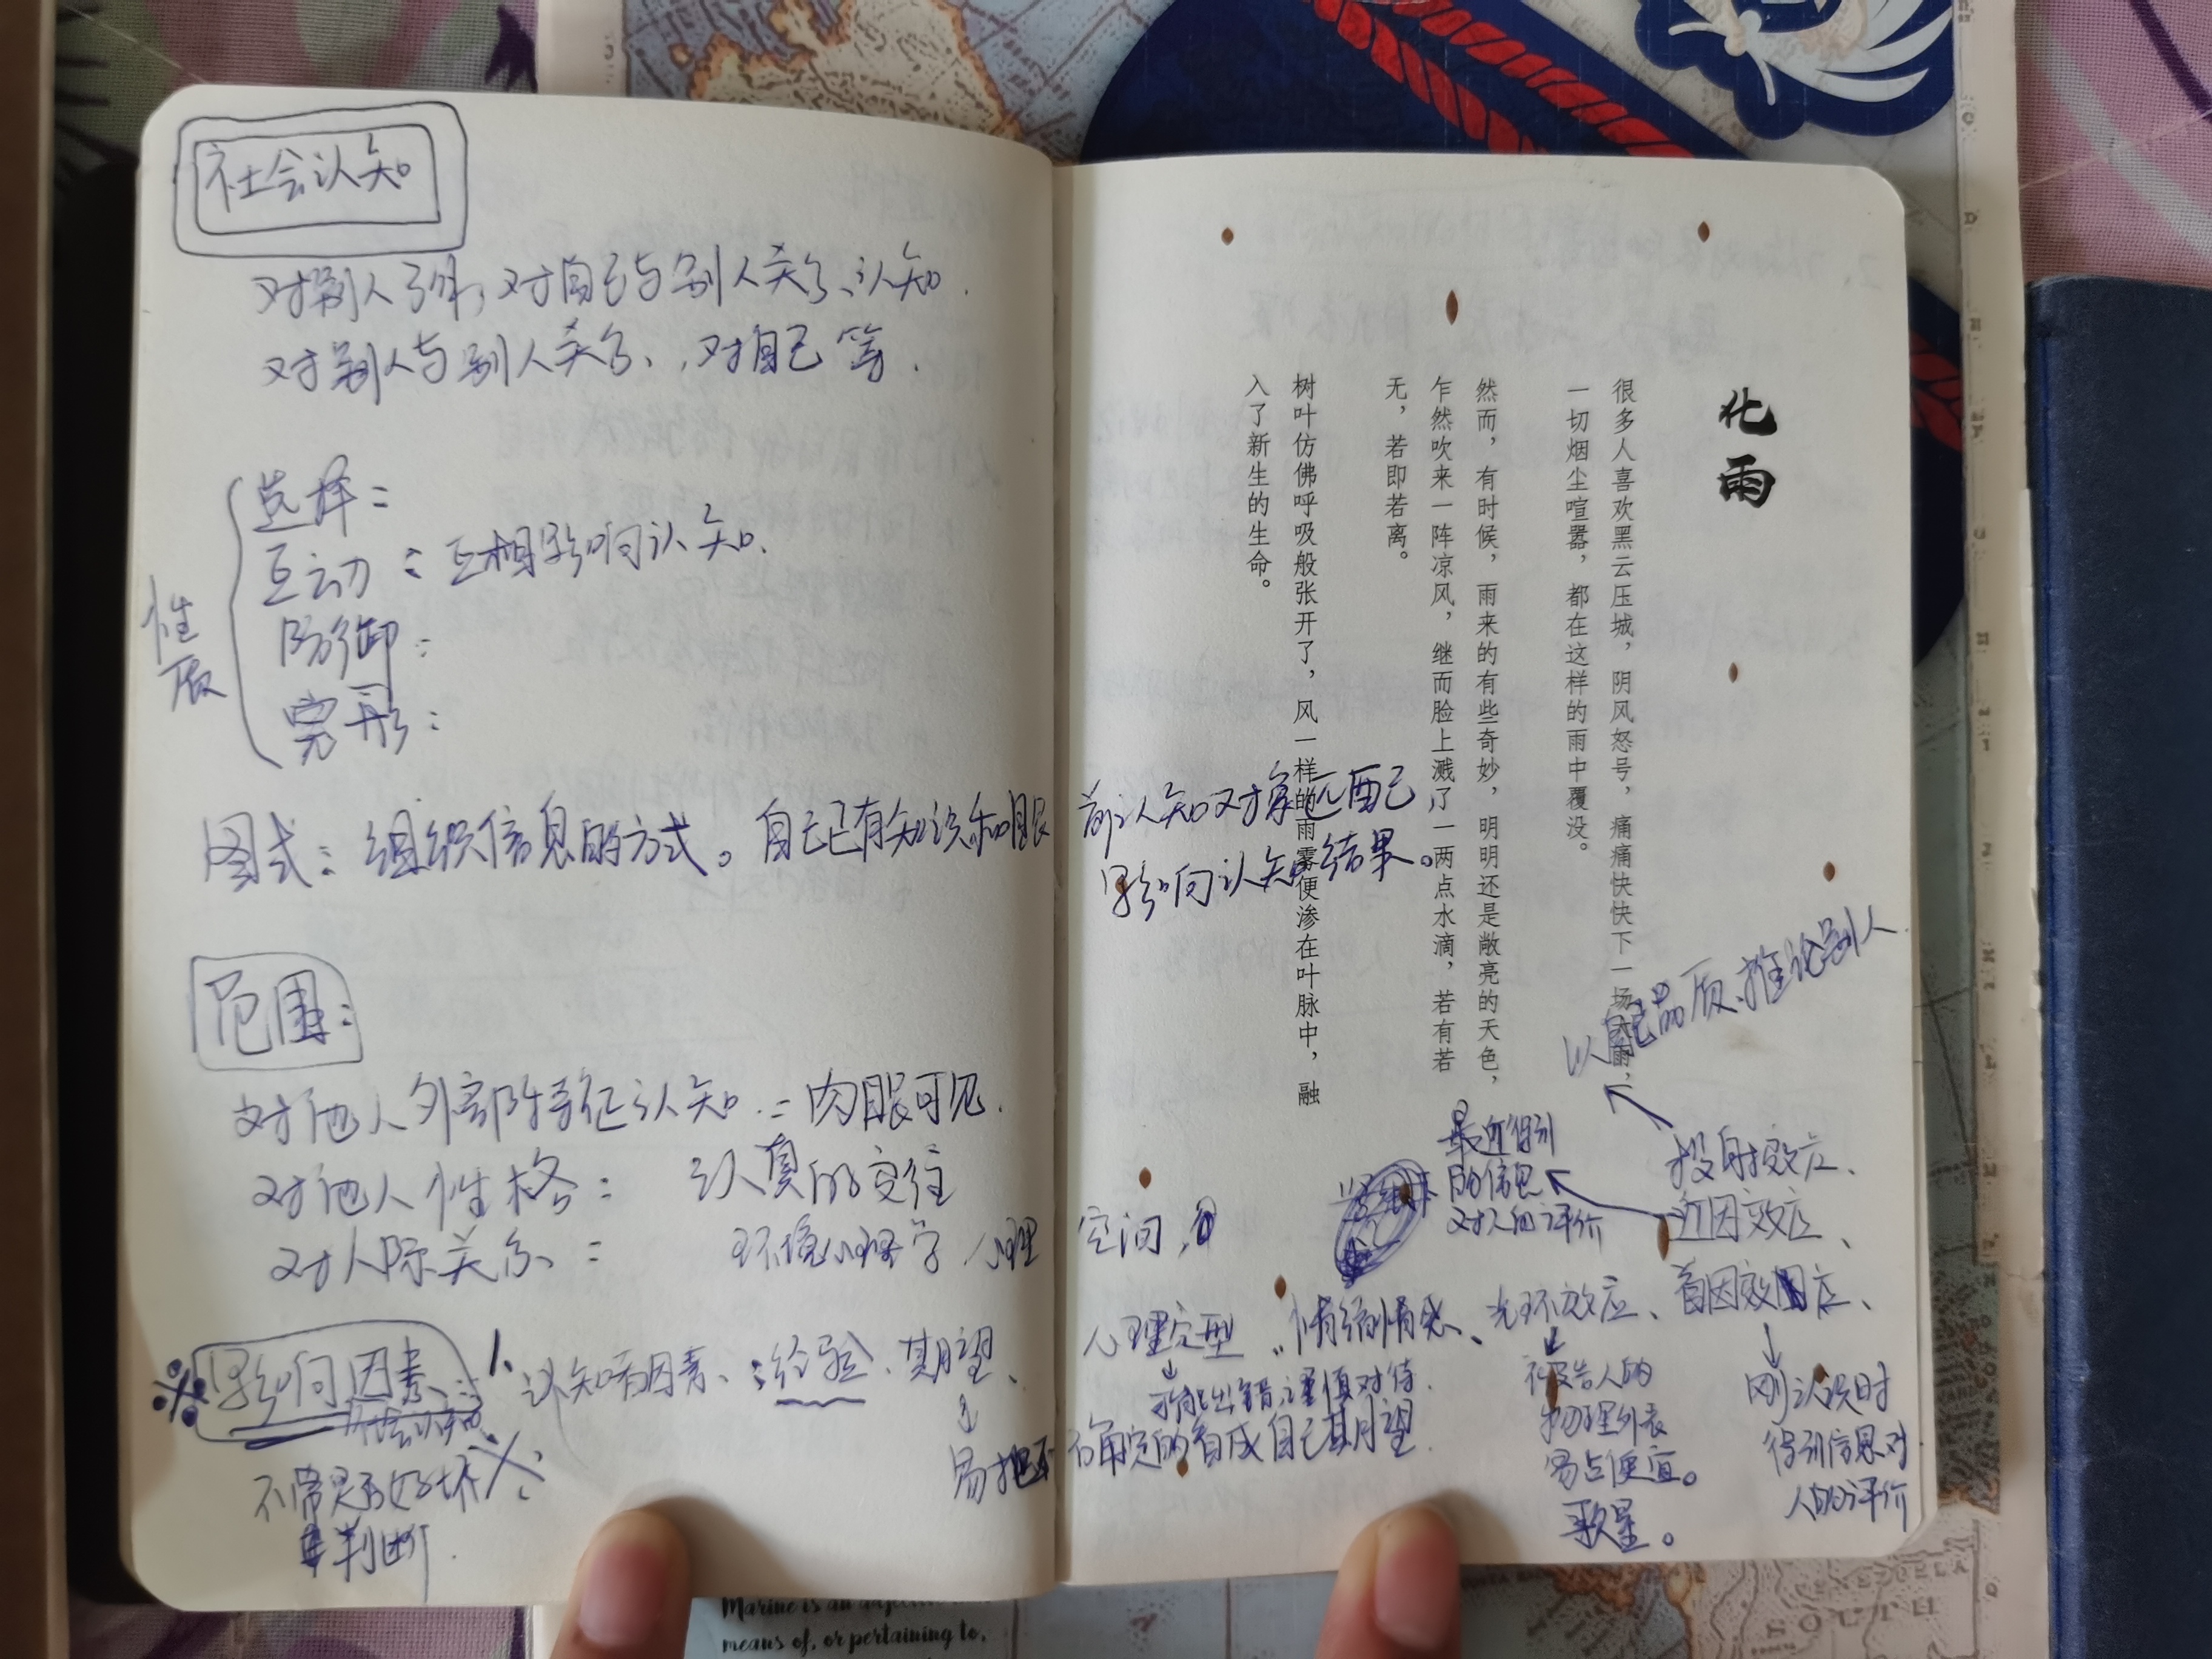 社会认知
对别人了解，对自己与别人关系、认知.
对别人与别人关系、对自己等.
性质
选择：
互动：互相影响认知.
防御：
完形：
图式：组织信息的方式。自己已有知识和眼前认知对象匹配，
影响认知结果。
范围：
对他人外部特征认知：肉眼可见.
对他人性格：认真的交往
对人际关系：环境心理学，心理空间，
影响因素：
1、认知者因素：经验、期望、
心理定型、情绪情感、光环效应、首因效应、
近因效应、
投射效应、
以自己品质、推论别人
最近得到
的信息
对人的评价
可能出错，谨慎对待.
易把不确定的看成自己期望.
被告人的
物理外表
易占便宜。
歌星。
刚认识时
得到信息对
人的评价
不带是否好坏
判断.
化雨
很多人喜欢黑云压城，阴风怒号，痛痛快快下一场大雨，
一切烟尘喧嚣，都在这样的雨中覆没。
然而，有时候，雨来的有些奇妙，明明还是敞亮的天色，
乍然吹来一阵凉风，继而脸上溅了一两点水滴，若有若
无，若即若离。
树叶仿佛呼吸般张开了，风一样的雨雾便渗在叶脉中，融
入了新生的生命。
Marine is an
means of, or pertaining to,
VENEZUELA
SOUTH